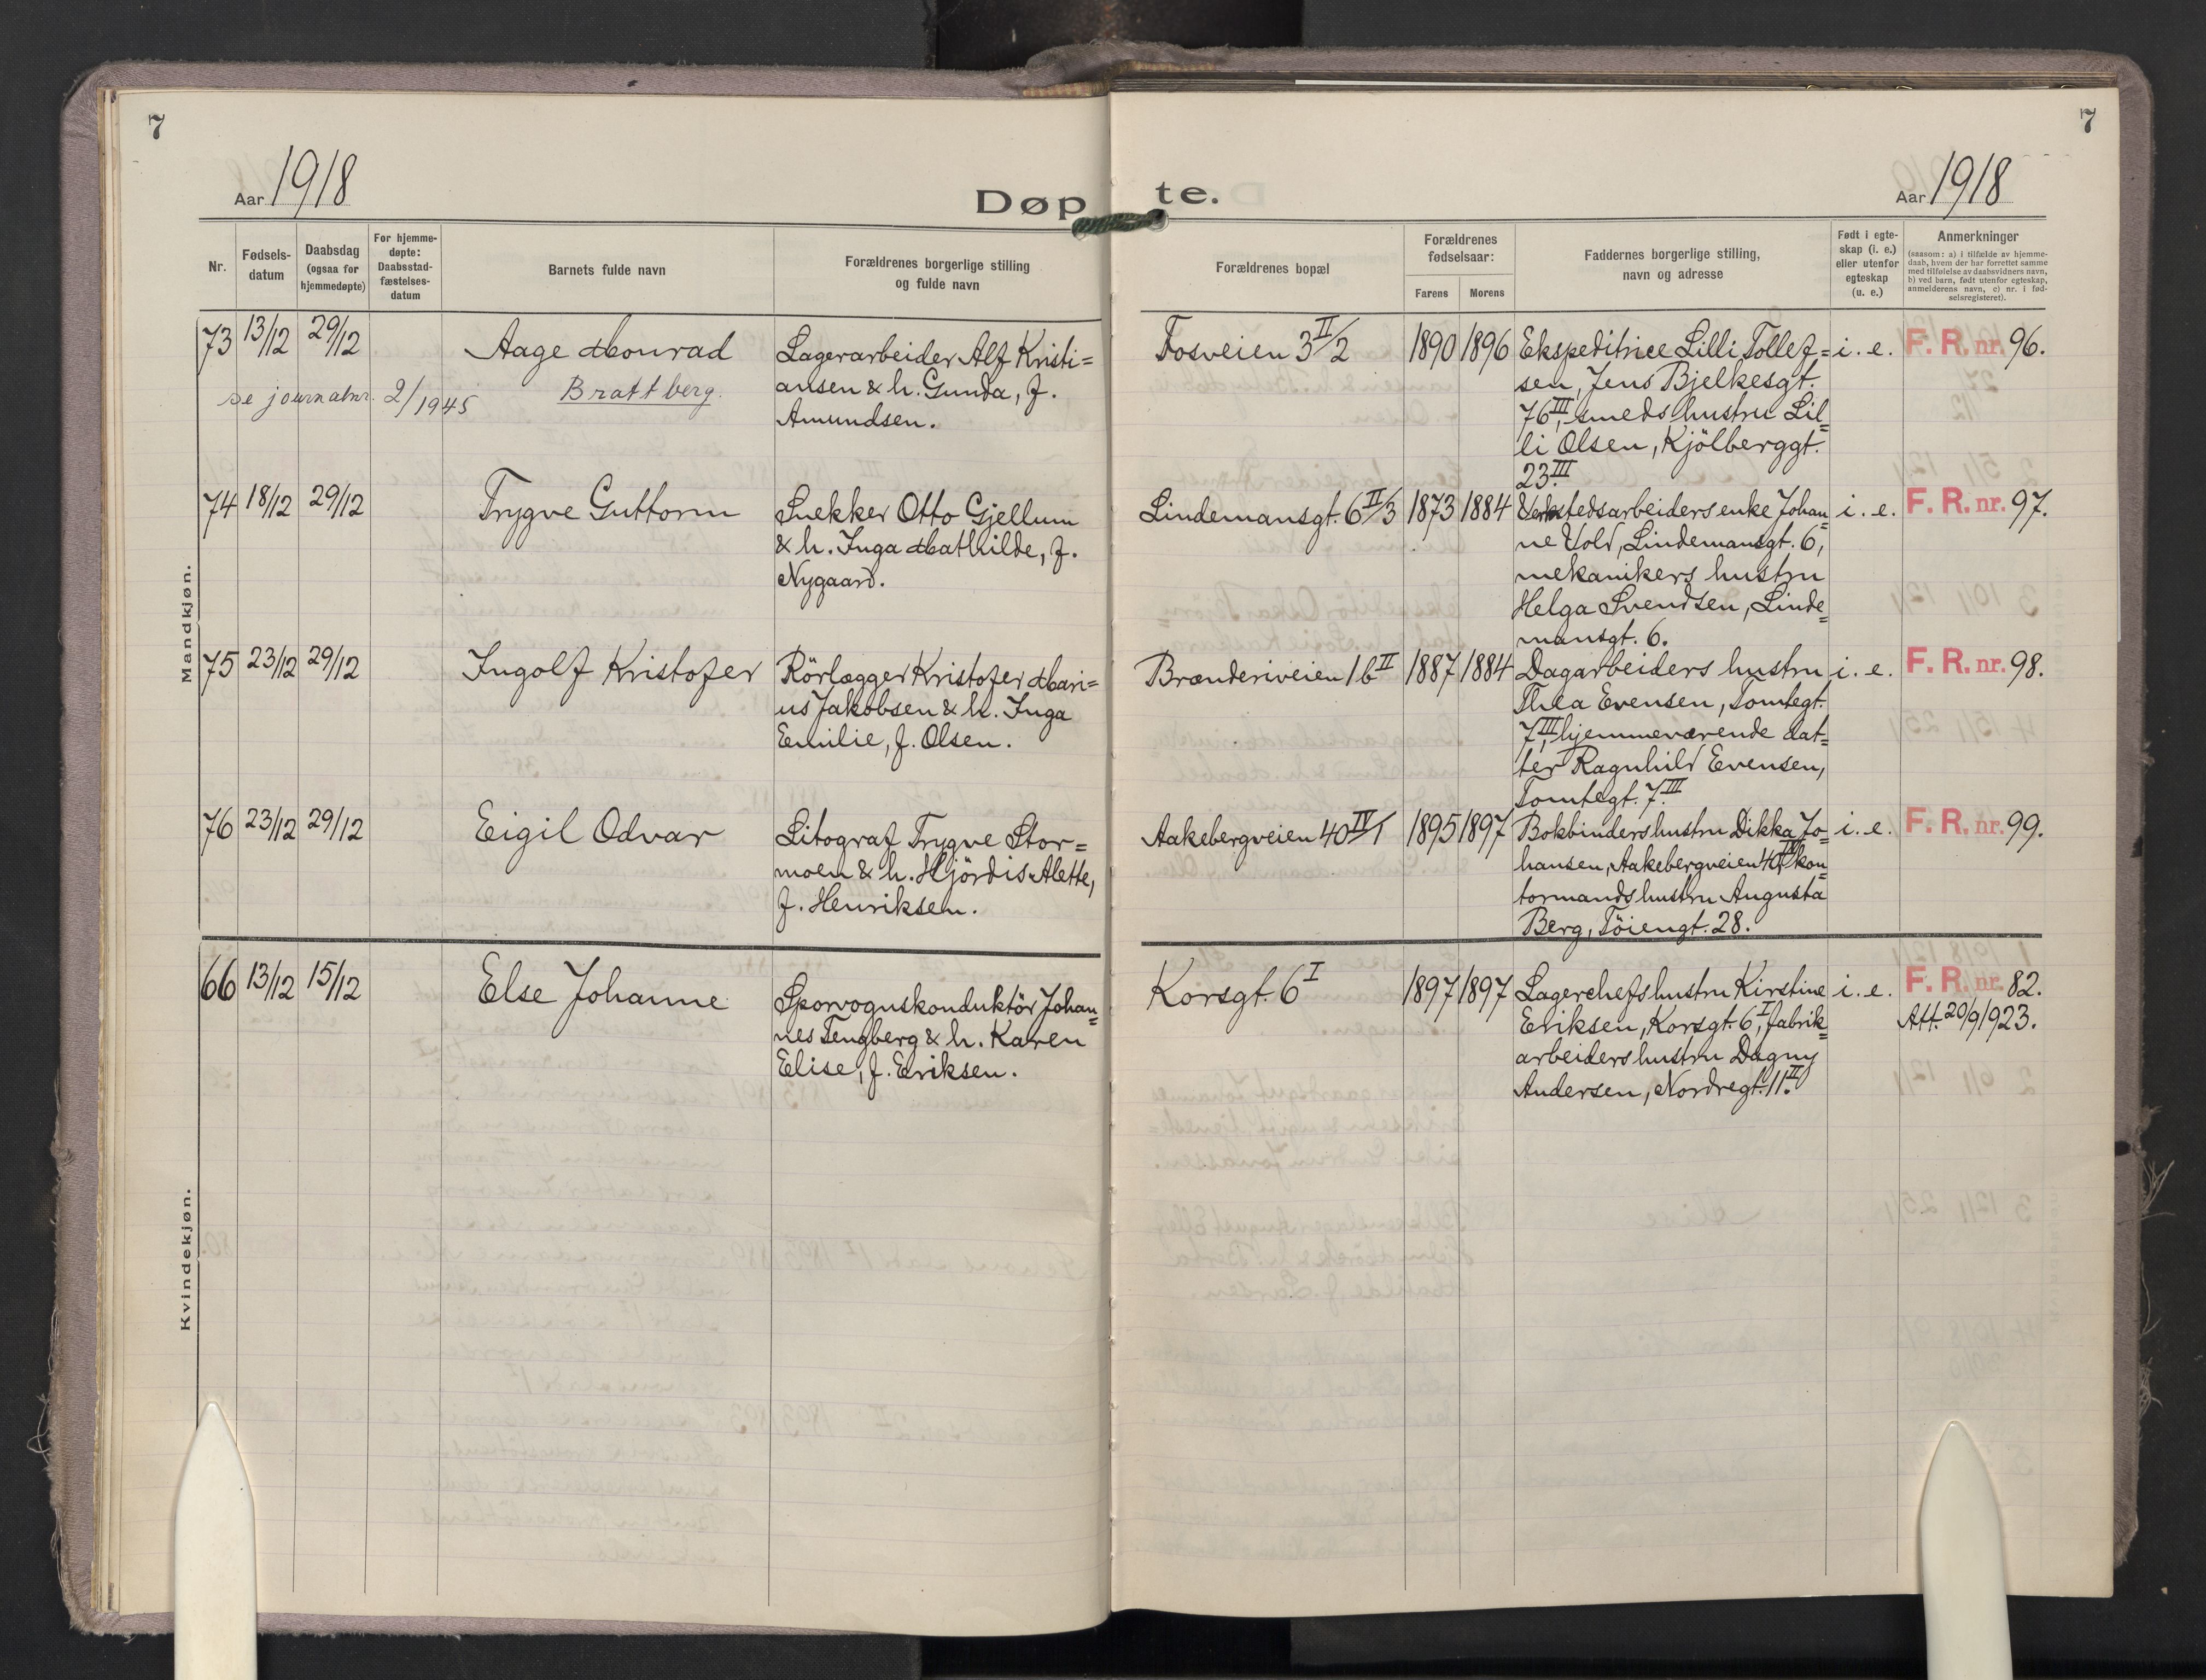 7
7
Aar 1918
Døpte.
Aar 1918
Nr.
Fødsels-
datum
Daabsdag
(ogsaa for
hjemmedøpte)
For hjemme-
døpte:
Daabsstad-
fæstelses-
datum
Barnets fulde navn
Forældrenes borgerlige stilling
og fulde navn
Forældrenes bopæl
Forældrenes
fødselsaar:
Farens
Morens
Faddernes borgerlige stilling,
navn og adresse
Født i egte-
skap (i. e.)
eller utenfor
egteskap
(u. e.)
Anmerkninger
(saasom: a) i tilfælde av hjemme-
daab, hvem der har forrettet samme
med tilføielse av daabsvidners navn,
b) ved barn, født utenfor egteskap,
anmelderens navn, c) nr. i fød-
selsregisteret).
Mandkjøn.
73 13/12 29/12 Aage Monrad
se journalnr. 2/1945 Brattberg.
Lagerarbeider Alf Kristi=
ansen & h. Gunda, f.
Amundsen.
Fosveien 3 II/2 1890 1896
Ekspeditrice Lilli Tollef=
sen, Jens Bjelkesgt.
76 III, smedshustru Lil=
li Olsen, Kjölberggt.
23 III
i. e. F. R. nr. 96.
74 18/12 29/12 Trygve Guttorm
Snekker Otto Gjellum
& h. Inga Mathilde, f.
Nygaard.
Lindemansgt. 6 II/3 1873 1884
Verkstedsarbeiders enke Johan=
ne Vold, Lindemansgt. 6,
mekanikers hustru
Helga Svendsen, Linde=
mansgt. 6.
i. e. F. R. nr. 97.
75 23/12 29/12 Ingolf Kristofer
Rörlægger Kristofer Mari=
us Jakobsen & h. Inga
Emilie, f. Olsen.
Brænderiveien 1 b II 1887 1884
Dagarbeiders hustru
Thea Evensen, Tomtegt.
7 III, hjemmeværende dat=
ter Ragnhild Evensen,
Tomtegt. 7 III.
i. e. F. R. nr. 98.
76 23/12 29/12 Eigil Odvar
Litograf Trygve Stor=
moen & h. Hjördis Alette,
f. Henriksen.
Aakebergveien 40 IV/1 1895 1897
Bokbinders hustru Dikka Jo=
hansen, Aakebergveien 40 IV, kon=
tormands hustru Augusta
Berg, Töiengt. 28.
i. e. F. R. nr. 99.
Kvindekjøn.
66 13/12 15/12 Else Johanne
Sporvognskonduktör Johan=
nes Tengberg & h. Karen
Elise, f. Eriksen.
Korsgt. 6 I 1897 1897
Lagerchefs hustru Kirstine
Eriksen, Korsgt. 6 I, fabrik=
arbeiders hustru Dagny
Andersen, Nordregt. 11 II.
i. e. F. R. nr. 82.
Att. 20/9 1923.